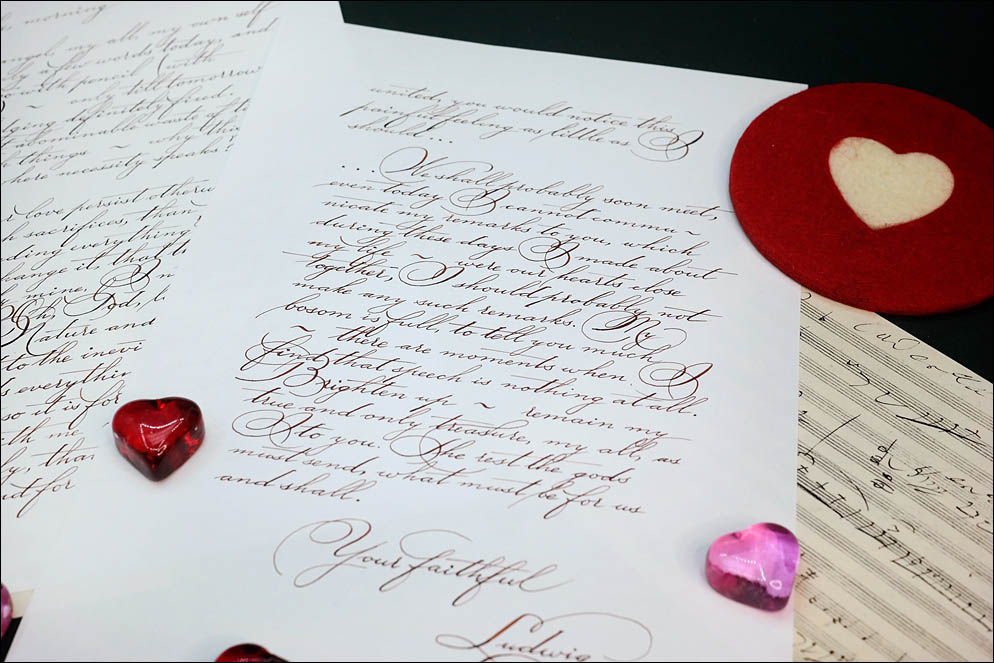 morning
angel, my all, my own self
a few words today, and
with pencil (with
~ only till tomorrow
definitely fixed.
abominable waste of
things ~ why this
where necessity speaks?
love persist otherw
sacrifices, than
everything
change it, that
mine.
Oh, God,
Nature and
to the inevi
everythin
so it is for
with me
tha
for
united, you would notice this
painful feeling as little as I
should...
... We shall probably soon meet,
even today I cannot commu~
nicate my remarks to you, which
during these days I made about
my life ~ were our hearts close
together, I should probably not
make any such remarks. My
bosom is full, to tell you much
~ there are moments when I
find that speech is nothing at all.
Brighten up ~ remain my
true and only treasure, my all, as
I to you. The rest the gods
must send, what must be for us
and shall.
Your faithful
Ludwig